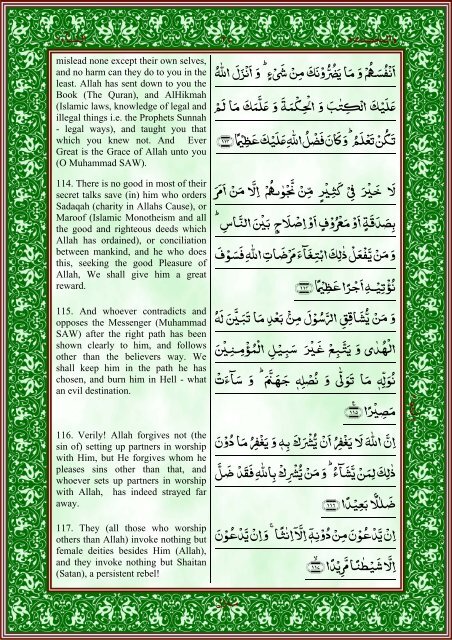 mislead none except their own selves,
and no harm can they do to you in the
least. Allah has sent down to you the
Book (The Quran), and AlHikmah
(Islamic laws, knowledge of legal and
illegal things i.e. the Prophets Sunnah
- legal ways), and taught you that
which you knew not. And Ever
Great is the Grace of Allah unto you
(O Muhammad SAW).
اَنْفُسَهُمْ وَ مَا يَضُرُّوْنَكَ مِنْ شَىْءٍ ؕ وَ اَنْزَلَ اللّٰهُ
عَلَيْكَ الْكِتٰبَ وَ الْحِكْمَةَ وَ عَلَّمَكَ مَا لَمْ
تَكُنْ تَعْلَمُ ؕ وَ كَانَ فَضْلُ اللّٰهِ عَلَيْكَ عَظِيْمًا ﴿۱۱۳﴾
114. There is no good in most of their
secret talks save (in) him who orders
Sadaqah (charity in Allahs Cause), or
Maroof (Islamic Monotheism and all
the good and righteous deeds which
Allah has ordained), or conciliation
between mankind, and he who does
this, seeking the good Pleasure of
Allah, We shall give him a great
reward.
لَا خَيْرَ فِىْ كَثِيْرٍ مِّنْ نَّجْوٰىهُمْ اِلَّا مَنْ اَمَرَ
بِصَدَقَةٍ اَوْ مَعْرُوْفٍ اَوْ اِصْلَاحٍ ۢ بَيْنَ النَّاسِ ؕ
وَ مَنْ يَّفْعَلْ ذٰلِكَ ابْتِغَآءَ مَرْضَاتِ اللّٰهِ فَسَوْفَ
نُؤْتِيْهِ اَجْرًا عَظِيْمًا ﴿۱۱۴﴾
115. And whoever contradicts and
opposes the Messenger (Muhammad
SAW) after the right path has been
shown clearly to him, and follows
other than the believers way. We
shall keep him in the path he has
chosen, and burn him in Hell - what
an evil destination.
وَ مَنْ يُّشَاقِقِ الرَّسُوْلَ مِنْۢ بَعْدِ مَا تَبَيَّنَ لَهُ
الْهُدٰى وَ يَتَّبِعْ غَيْرَ سَبِيْلِ الْمُؤْمِنِيْنَ
نُوَلِّهٖ مَا تَوَلّٰى وَ نُصْلِهٖ جَهَنَّمَ ؕ وَ سَآءَتْ
مَصِيْرًا ﴿۱۱۵﴾
116. Verily! Allah forgives not (the
sin of) setting up partners in worship
with Him, but He forgives whom he
pleases sins other than that, and
whoever sets up partners in worship
with Allah, has indeed strayed far
away.
اِنَّ اللّٰهَ لَا يَغْفِرُ اَنْ يُّشْرَكَ بِهٖ وَ يَغْفِرُ مَا دُوْنَ
ذٰلِكَ لِمَنْ يَّشَآءُ ؕ وَ مَنْ يُّشْرِكْ بِاللّٰهِ فَقَدْ ضَلَّ
ضَلٰلًاۢ بَعِيْدًا ﴿۱۱۶﴾
117. They (all those who worship
others than Allah) invoke nothing but
female deities besides Him (Allah),
and they invoke nothing but Shaitan
(Satan), a persistent rebel!
اِنْ يَّدْعُوْنَ مِنْ دُوْنِهٖۤ اِلَّاۤ اِنٰثًا ۚ وَ اِنْ يَّدْعُوْنَ
اِلَّا شَيْطٰنًا مَّرِيْدًا ﴿۱۱۷﴾